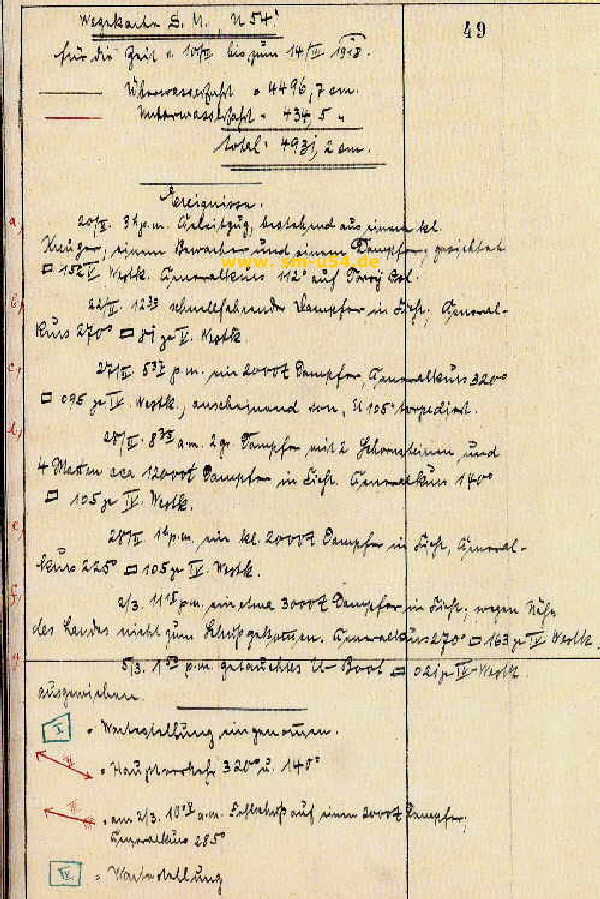 Wegekarte S. M. „U 54“
49
für die Zeit v. bis zum 14/III 1918.
Überwasserfahrt = 4496,7 sm.
Unterwasserfahrt = 434,5 „
total: 4931,2 sm.
Ereignisse.
a, p.m. Geleitzug, bestehend aus einem kl.
Kreuzer, einem Bewacher und einem Dampfer, gesichtet
www.sm-u54.de
□ Westk. Generalkurs 112° auf Tory Isl.
b, schnellfahrender Dampfer in Sicht, General-
kurs 270° □ Westk.
c, p.m. ein 2000t Dampfer, Generalkurs 320°
□ Westk., anscheinend von „U 105“ torpediert.
d, a.m. 2 gr. Dampfer mit 2 Schornsteinen und
4 Masten cca 12000t Dampfer in Sicht. Generalkurs 140°
□ Westk.
e, p.m. ein kl. 2000t Dampfer in Sicht, General-
kurs 225° □ Westk.
f, 2/3. p.m. ein etwa 3000t Dampfer in Sicht; wegen Nähe
des Landes nicht zum Schuß gekommen. Generalkurs 270° □ Westk.
g, 5/3. p.m. getauchtes U-Boot □ Westk.
ausgewichen.
I = Wartestellung eingenommen.
II = Hauptverkehr 320° u. 140°
III = am 2/3. a.m. Fehlschuß auf einen 2000t Dampfer,
Generalkurs 285°
IV = Wartestellung